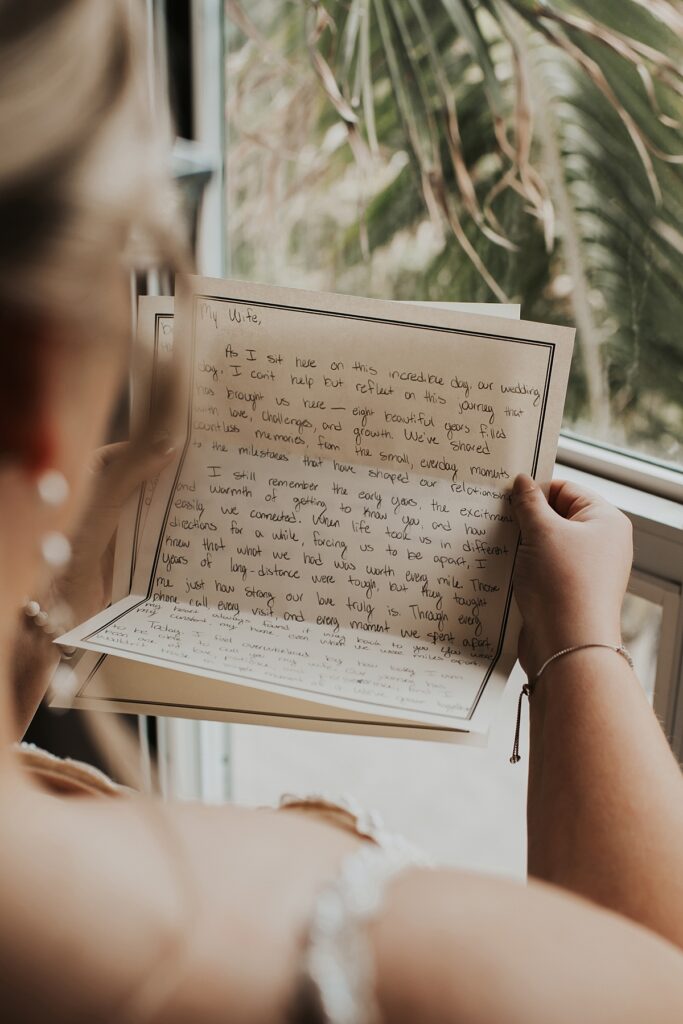 My Wife,
As I sit here on this incredible day, our wedding
day, I can't help but reflect on this journey that
has brought us here — eight beautiful years filled
with love, challenges, and growth. We've shared
countless memories, from the small, everyday moments
to the milestones that have shaped our relationship
I still remember the early years, the excitment
and warmth of getting to know you, and how
easily we connected. When life took us in different
directions for a while, forcing us to be apart, I
knew that what we had was worth every mile. Those
years of long-distance were tough, but they taught
me just how strong our love truly is. Through every
phone call, every visit, and every moment we spent apart,
my heart always found it way back to you. You were
my constant, my home even when we were miles apart.
Today, I feel overwhelmed by how lucky I am
to be able to call you my wife. Our journey has